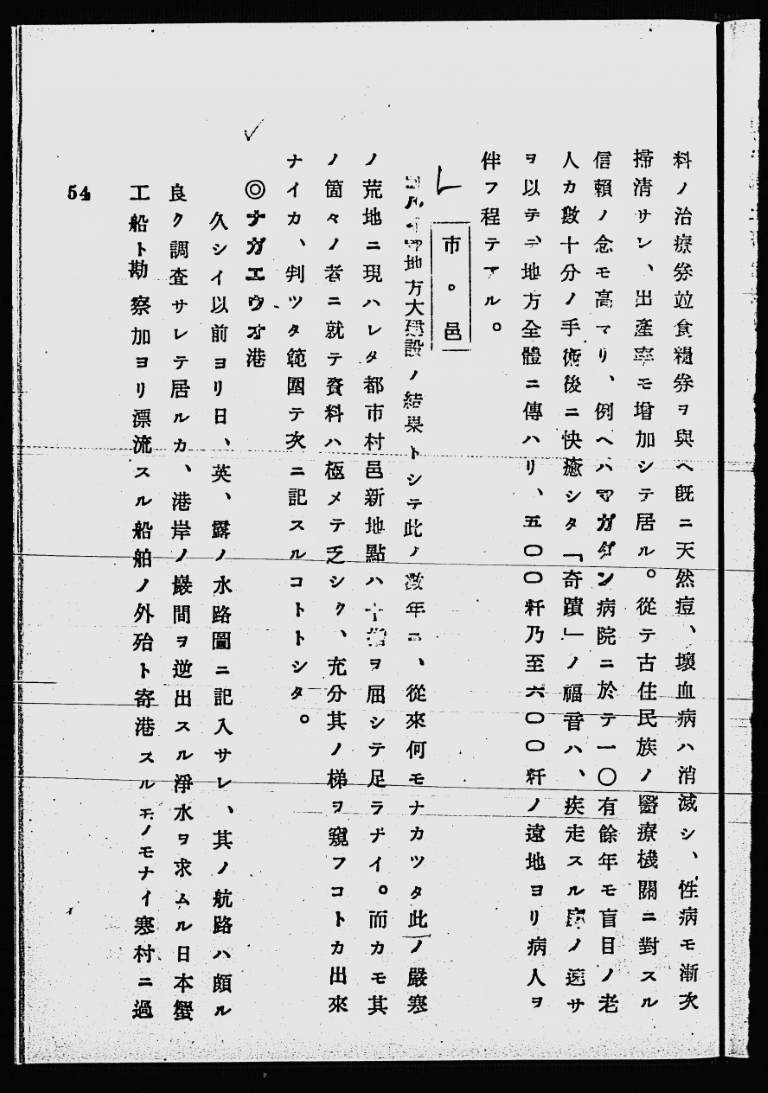 料ノ治療券竝食糧券ヲ與ヘ既ニ天然痘、壞血病ハ消滅シ、性病モ漸次
掃清サレ、出產率モ增加シテ居ル。從テ古住民族ノ醫療機關ニ對スル
信賴ノ念モ高マリ、例ヘハマガダン病院ニ於テ一〇有餘年モ盲目ノ老
人カ數十分ノ手術後ニ快癒シタ「奇蹟」ノ福音ハ、疾走スル ノ速サ
ヲ以テ 地方全體ニ傳ハリ、五〇〇粁乃至六〇〇粁ノ遠地ヨリ病人ヲ
伴フ程テアル。
市。邑
地方大建設ノ結果トシテ此ノ數年ニ、從來何モナカツタ此ノ嚴寒
ノ荒地ニ現ハレタ都市村邑新地點ハ十指ヲ屈シテ足ラナイ。而カモ其
ノ箇々ノ者ニ就テ資料ハ極メテ乏シク、充分其ノ梯ヲ窺フコトカ出來
ナイカ、判ツタ範圍テ次ニ記スルコトトシタ。
◎ナガエウオ港
久シイ以前ヨリ日、英、露ノ水路圖ニ記入サレ、其ノ航路ハ頗ル
良ク調査サレテ居ルカ、港岸ノ巖間ヲ逆出スル淨水ヲ求ムル日本蟹
工船ト勘察加ヨリ漂流スル船舶ノ外殆ト寄港スルモノモナイ寒村ニ過
54